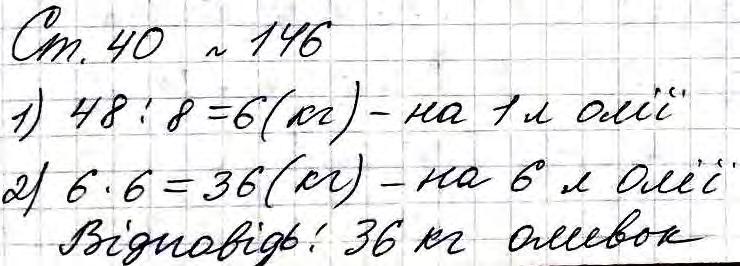 Ст. 40 ~ 146
1) 48 : 8 = 6 (кг) – на 1 л олії
2) 6 · 6 = 36 (кг) – на 6 л олії
Відповідь: 36 кг оливок